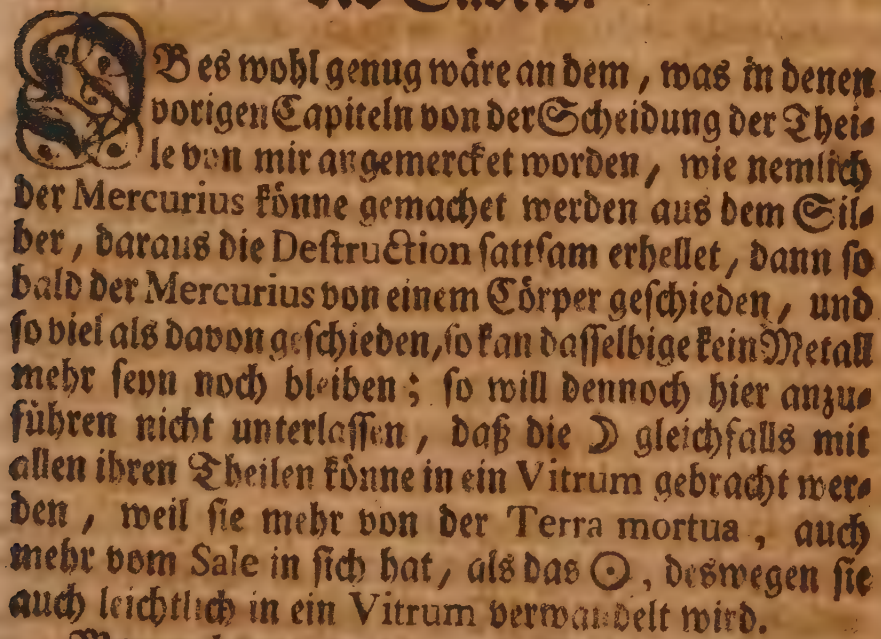 OB es wohl genug wäre an dem, was in denen
vorigen Capiteln von der Scheidung der Thei⸗
le von mir angemercket worden, wie nemlich
der Mercurius könne gemachet werden aus dem Sil⸗
ber, daraus die Destruction sattsam erhellet, dann so
bald der Mercurius von einem Cörper geschieden, und
so viel als davon geschieden, so kan dasselbige kein Metall
mehr seyn noch bleiben; so will dennoch hier anzu⸗
führen nicht unterlassen, daß die ☽ gleichfalls mit
allen ihren Theilen könne in ein Vitrum gebracht wer⸗
den, weil sie mehr von der Terra mortua, auch
mehr vom Sale in sich hat, als das ☉, deswegen sie
auch leichtlich in ein Vitrum verwandelt wird.